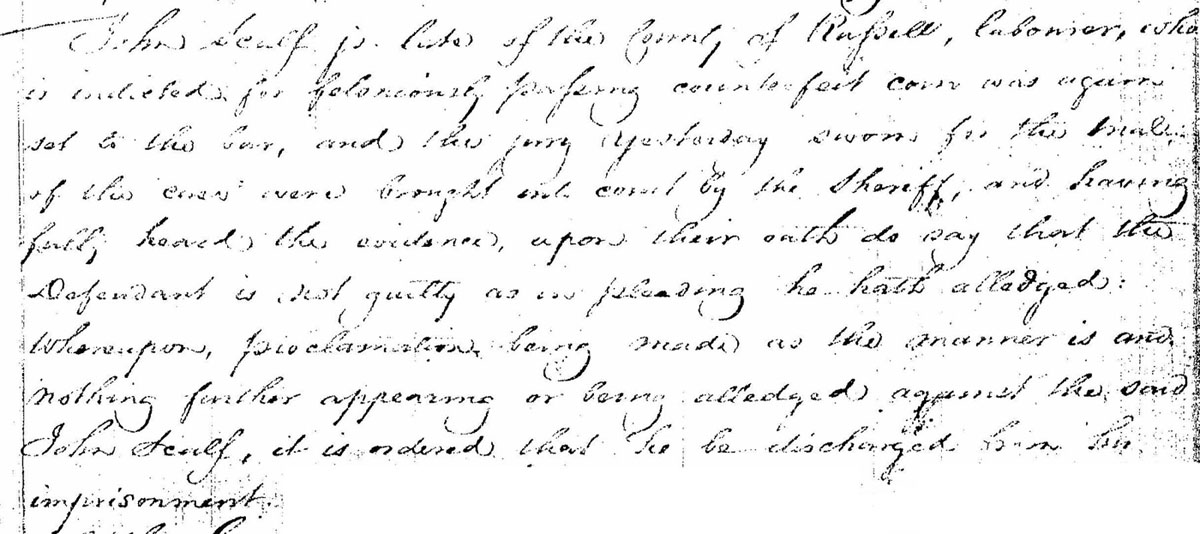 John Scalf jr. late of the County of Russell, labourer, who
is indicted for feloniously passing counterfeit coin was again
set to the bar, and the jury yesterday sworn for the trial
of the cause were brought into court by the Sheriff, and having
fully heard the evidence, upon their oath do say that the
Defendant is not guilty as in pleading he hath alledged:
Whereupon, proclamation being made as the manner is and
nothing further appearing or being alledged against the said
John Scalf, it is ordered that he be discharged from his
imprisonment.